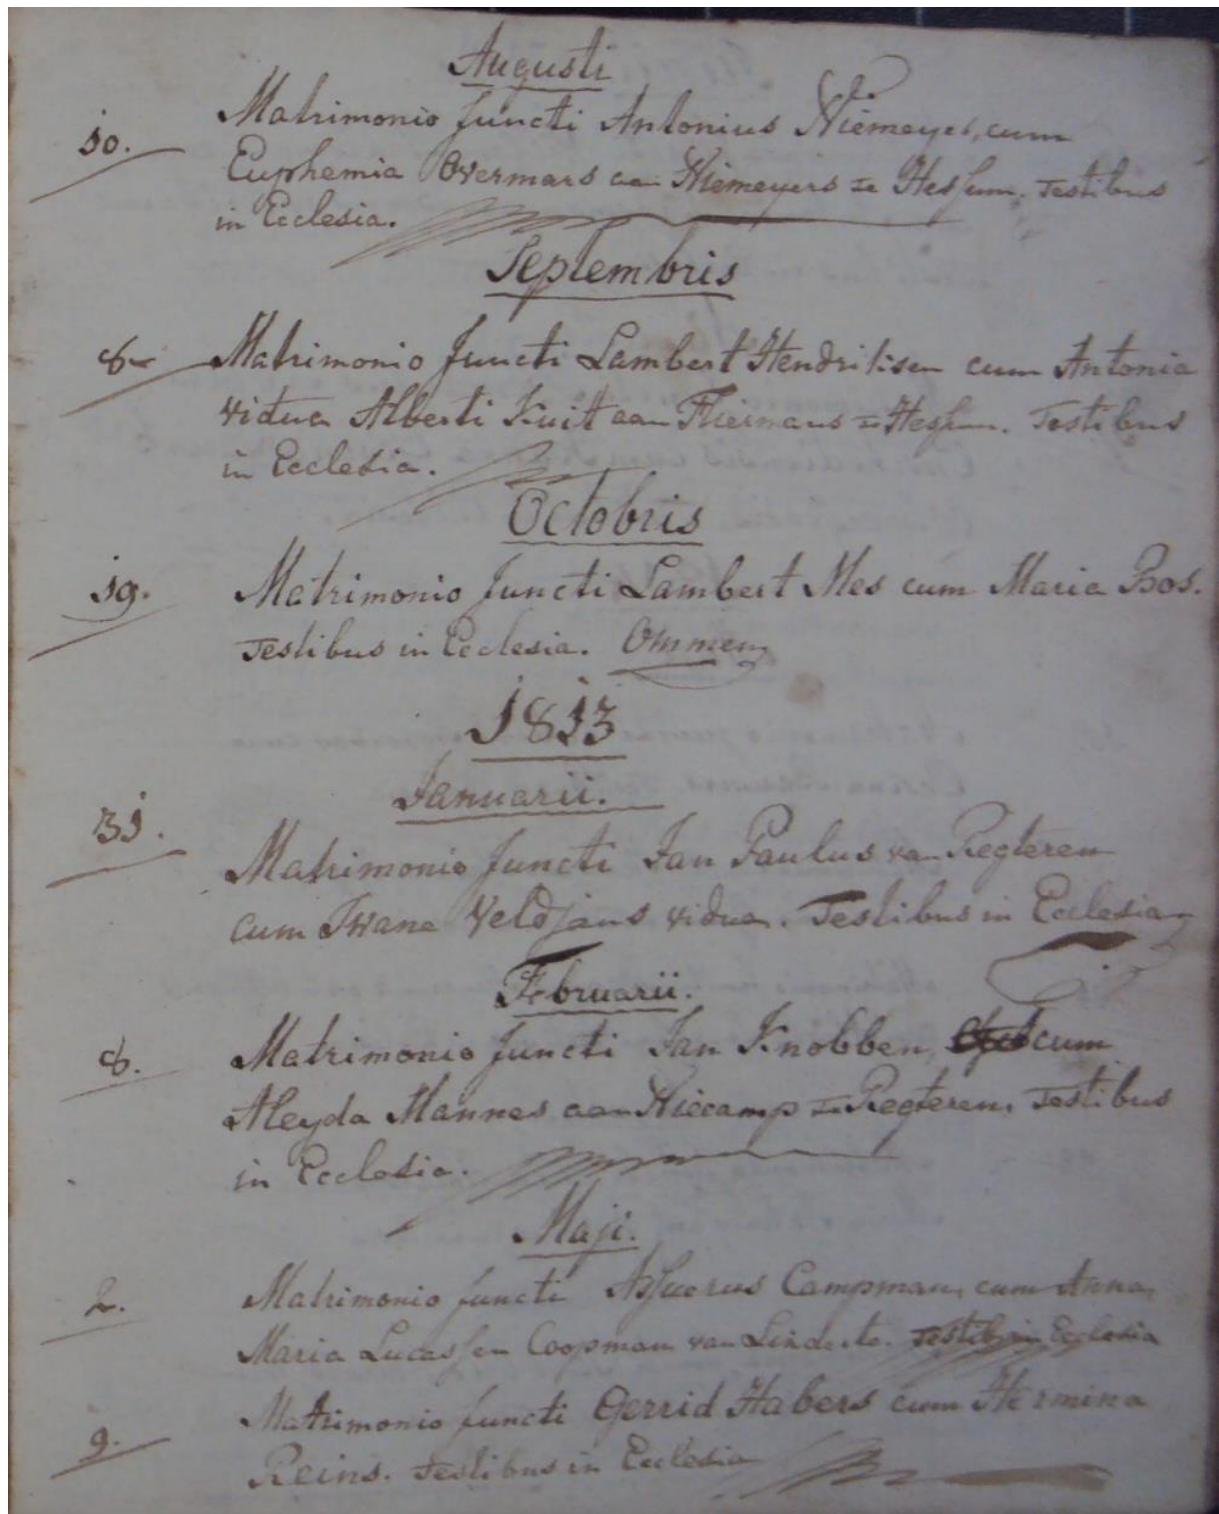 Augusti
10. Matrimonio juncti Antonius Niemeyer, cum
Euphemia Overmars aan Niemeyers te Hessum. Testibus
in Ecclesia.
Septembris
8 Matrimonio Juncti Lambert Hendriksen cum Antonia
vidua Alberti Kuit aan te Hessum. Testibus
in Ecclesia.
Octobris
19. Matrimonio Juncti Lambert Mes cum Maria Bos.
Testibus in Ecclesia. Ommen
1813
Januarii.
31. Matrimonio Juncti Jan Paulus van Regteren
cum Swane Veldjans vidua. Testibus in Ecclesia
Februarii.
8. Matrimonio Juncti Jan Knobben, cum
Aleyda Mannes aan Niecamp te Regteren, Testibus
in Ecclesia.
Maji.
2. Matrimonio juncti Assuerus Campman, cum Anna
Maria Lucassen Coopman van Linderte. Testib. in Ecclesia
9. Matrimonio juncti Gerrid Habers cum Hermina
Reins. Testibus in Ecclesia